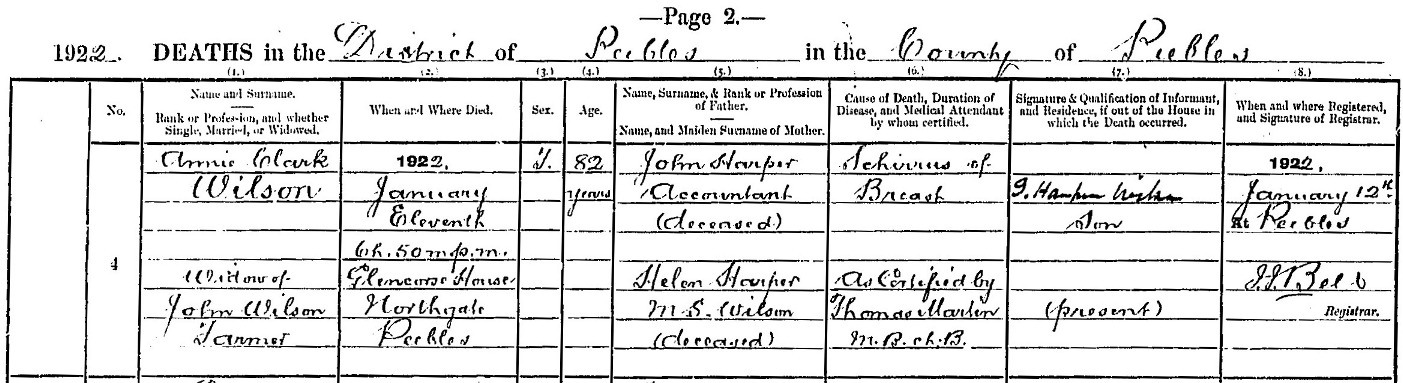 —Page 2.—
1922. DEATHS in the District of Peebles in the County of Peebles
(1.) (2.) (3.) (4.) (5.) (6.) (7.) (8.)
No.
Name and Surname.
Rank or Profession, and whether
Single, Married, or Widowed.
When and Where Died.
Sex.
Age.
Name, Surname, & Rank or Profession
of Father.
Name, and Maiden Surname of Mother.
Cause of Death, Duration of
Disease, and Medical Attendant
by whom certified.
Signature & Qualification of Informant,
and Residence, if out of the House in
which the Death occurred.
When and where Registered,
and Signature of Registrar.
4
Annie Clark
Wilson
Widow of
John Wilson
Farmer
1922,
January
Eleventh
6h. 50m p.m.
Glencorse House
Northgate
Peebles
F.
82
years
John Harper
Accountant
(deceased)
Helen Harper
M.S. Wilson
(deceased)
Schirrus of
Breast
As Certified by
Thomas Martin
M.B. ch. B.
Son
(present)
1922,
January 12th
At Peebles
Registrar.